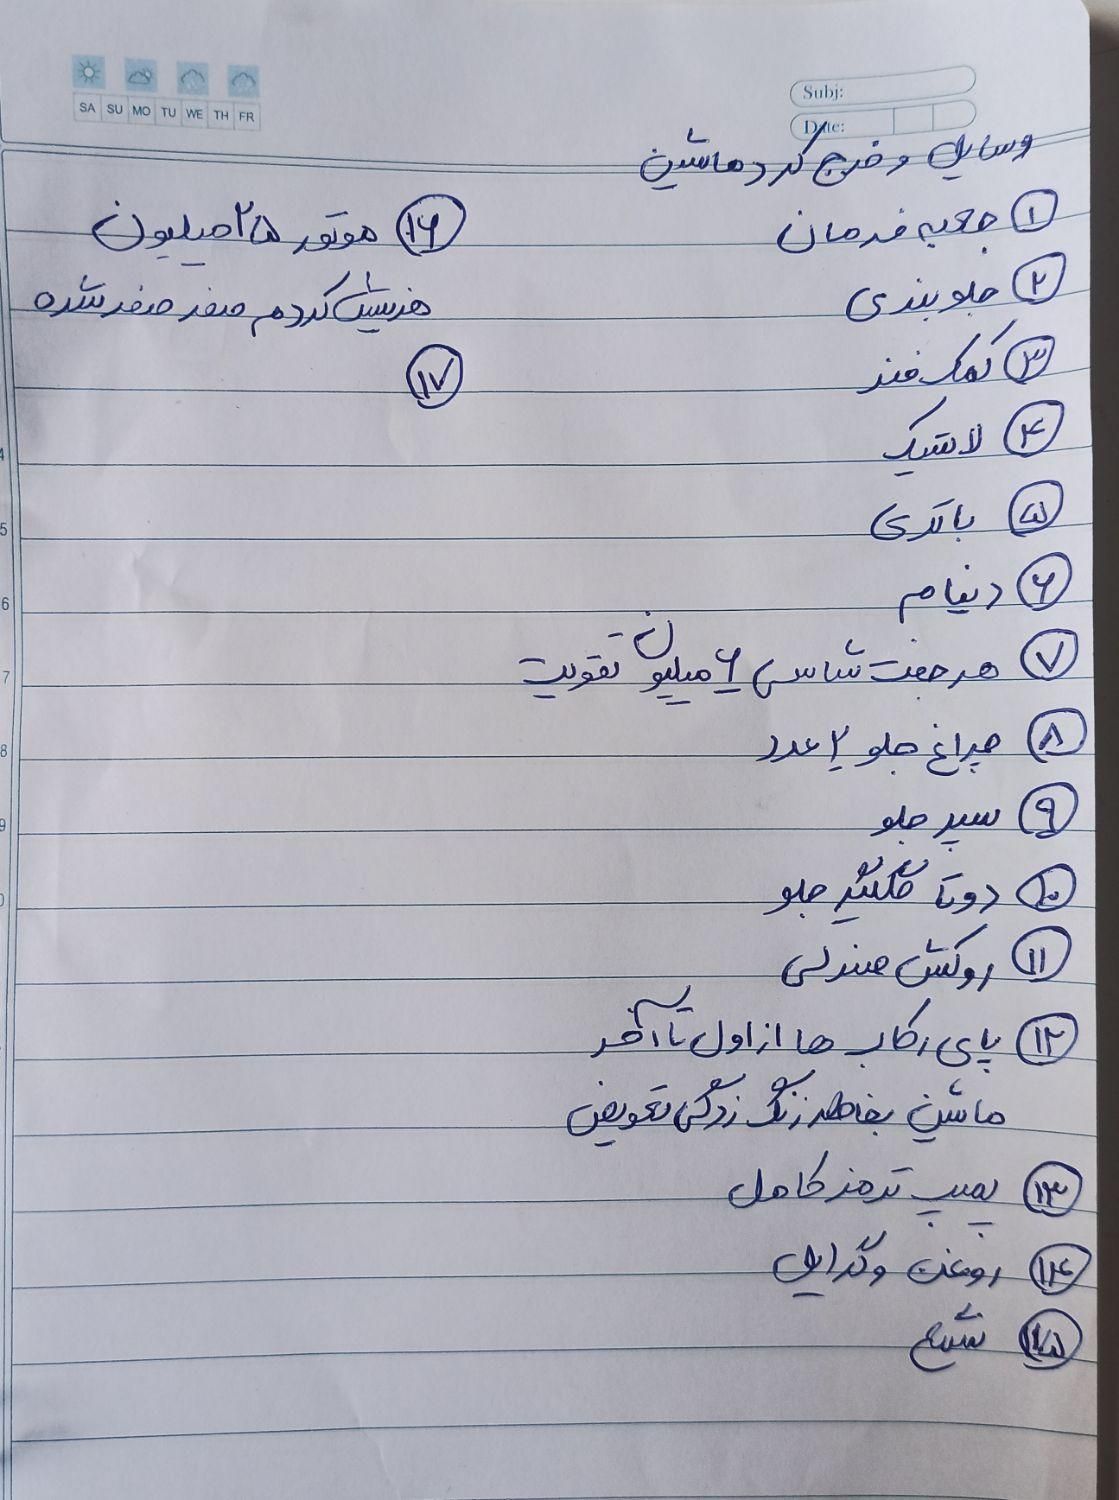 SA SU MO TU WE TH FR
Subj:
Date:
وسایل و خرج کرد ماشین
۱ جعبه فرمان
۲ جلوبندی
۳ کمک فنر
۴ لاستیک
۵ باتری
۶ دینام
۷ هر جفت شاسی ۶ میلیون تقویت
۸ چراغ جلو ۲ عدد
۹ سپر جلو
۱۰ دوتا گلگیر جلو
۱۱ روکش صندلی
۱۲ پای رکاب ها از اول تا آخر
ماشین بخاطر زنگ زدگی تعویض
۱۳ پمپ ترمز کامل
۱۴ روغن و گرایل
۱۵ شمع
۱۶ موتور ۲۵ میلیون
هزینش کردم صفر صفر شده
۱۷
4
5
6
7
8
9
0